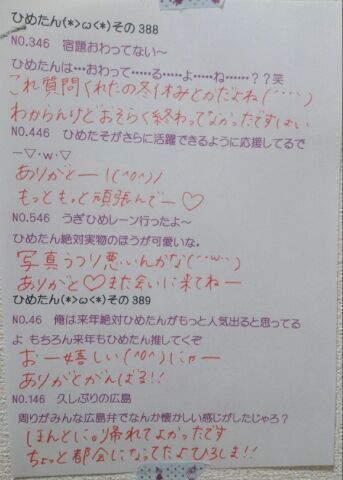 ひめたん(*>ω<*)その388
NO.346　宿題おわってない～
ひめたんは…おわって……る…‥よ…‥ね……？？笑
これ質問くれたの冬休みとかだよね(´･･･`)
わからんけどおそらく終わってなかったですはい
NO.446　ひめたそがさらに活躍できるように応援してるで
ー▽･w･▽
ありがとー!(^o^)/
もっともっと頑張んでー♡
NO.546　うぎひめレーン行ったよ～
ひめたん絶対実物のほうが可愛いな。
写真うつり悪いんかな(･･w･･)
ありがと♡また会いに来てねー
ひめたん(*>ω<*)その389
NO.46　俺は来年絶対ひめたんがもっと人気出ると思ってる
よ もちろん来年もひめたん推してくぞ
おー嬉しい(^o^)にゃー
ありがとがんばる!!
NO.146　久しぶりの広島
周りがみんな広島弁でなんか懐かしい感じがしたじゃろ？
ほんとに。帰れてよかったです
ちょっと都会になってたよひろしま!!